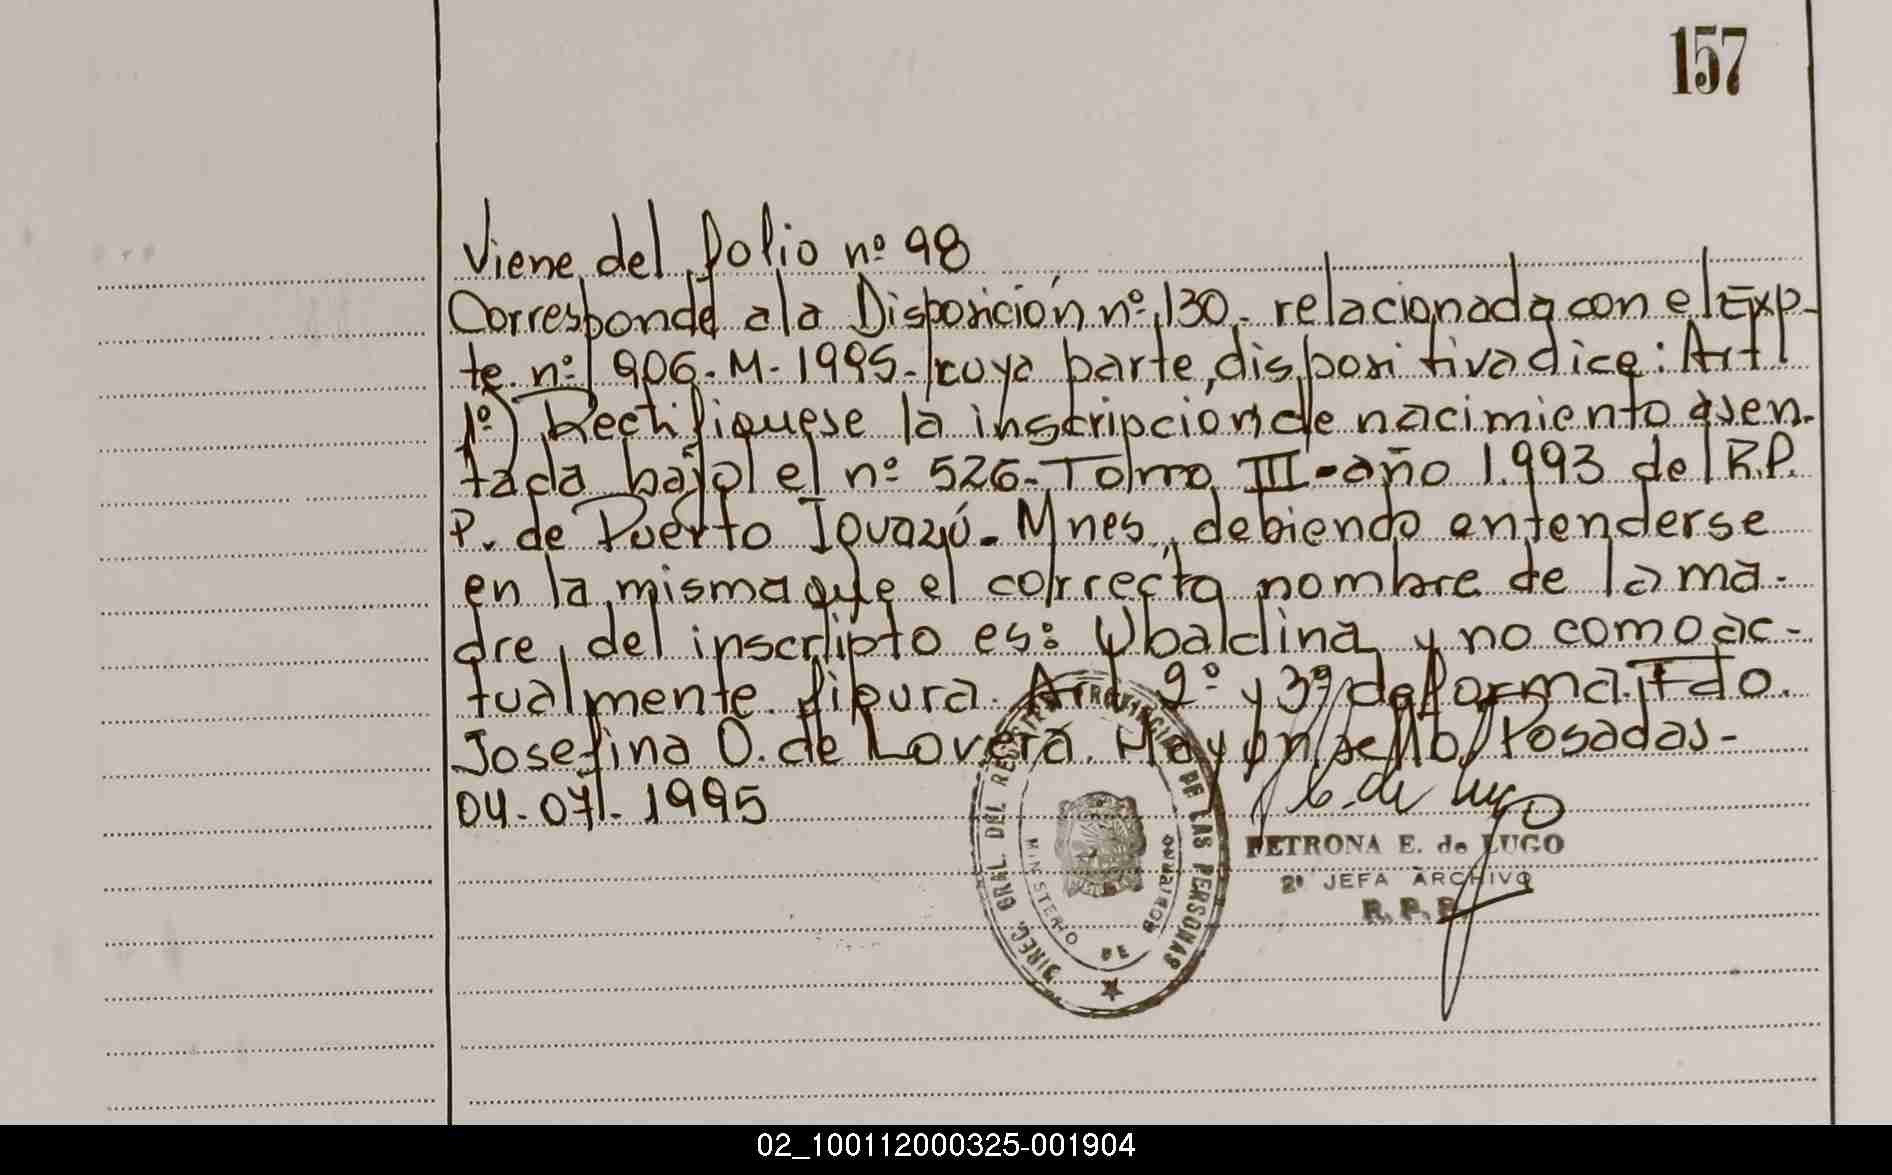 157
Viene del folio nº 98
Corresponde a la Disposición nº 130.- relacionada con el Exp-
te. nº 906-M-1995- cuya parte dispositiva dice: Art
1º) Rectifiquese la inscripción de nacimiento asen-
tada bajo el nº 526- Tomo III - año 1.993 del R.P.
P. de Puerto Iguazú - Mnes, debiendo entenderse
en la misma que el correcto nombre de la ma-
dre del inscripto es: Ubaldina y no como ac-
tualmente figura. Art. 2º y 3º de forma. Fdo.
Josefina O. de Lovera. Hay un sello, Posadas-
04-07-1995
DIREC. GRAL. DEL REGISTRO PROVINCIAL DE LAS PERSONAS
MINISTERIO DE GOBIERNO
PETRONA E. de LUGO
2ª JEFA ARCHIVO
R.P.P.
02_100112000325-001904